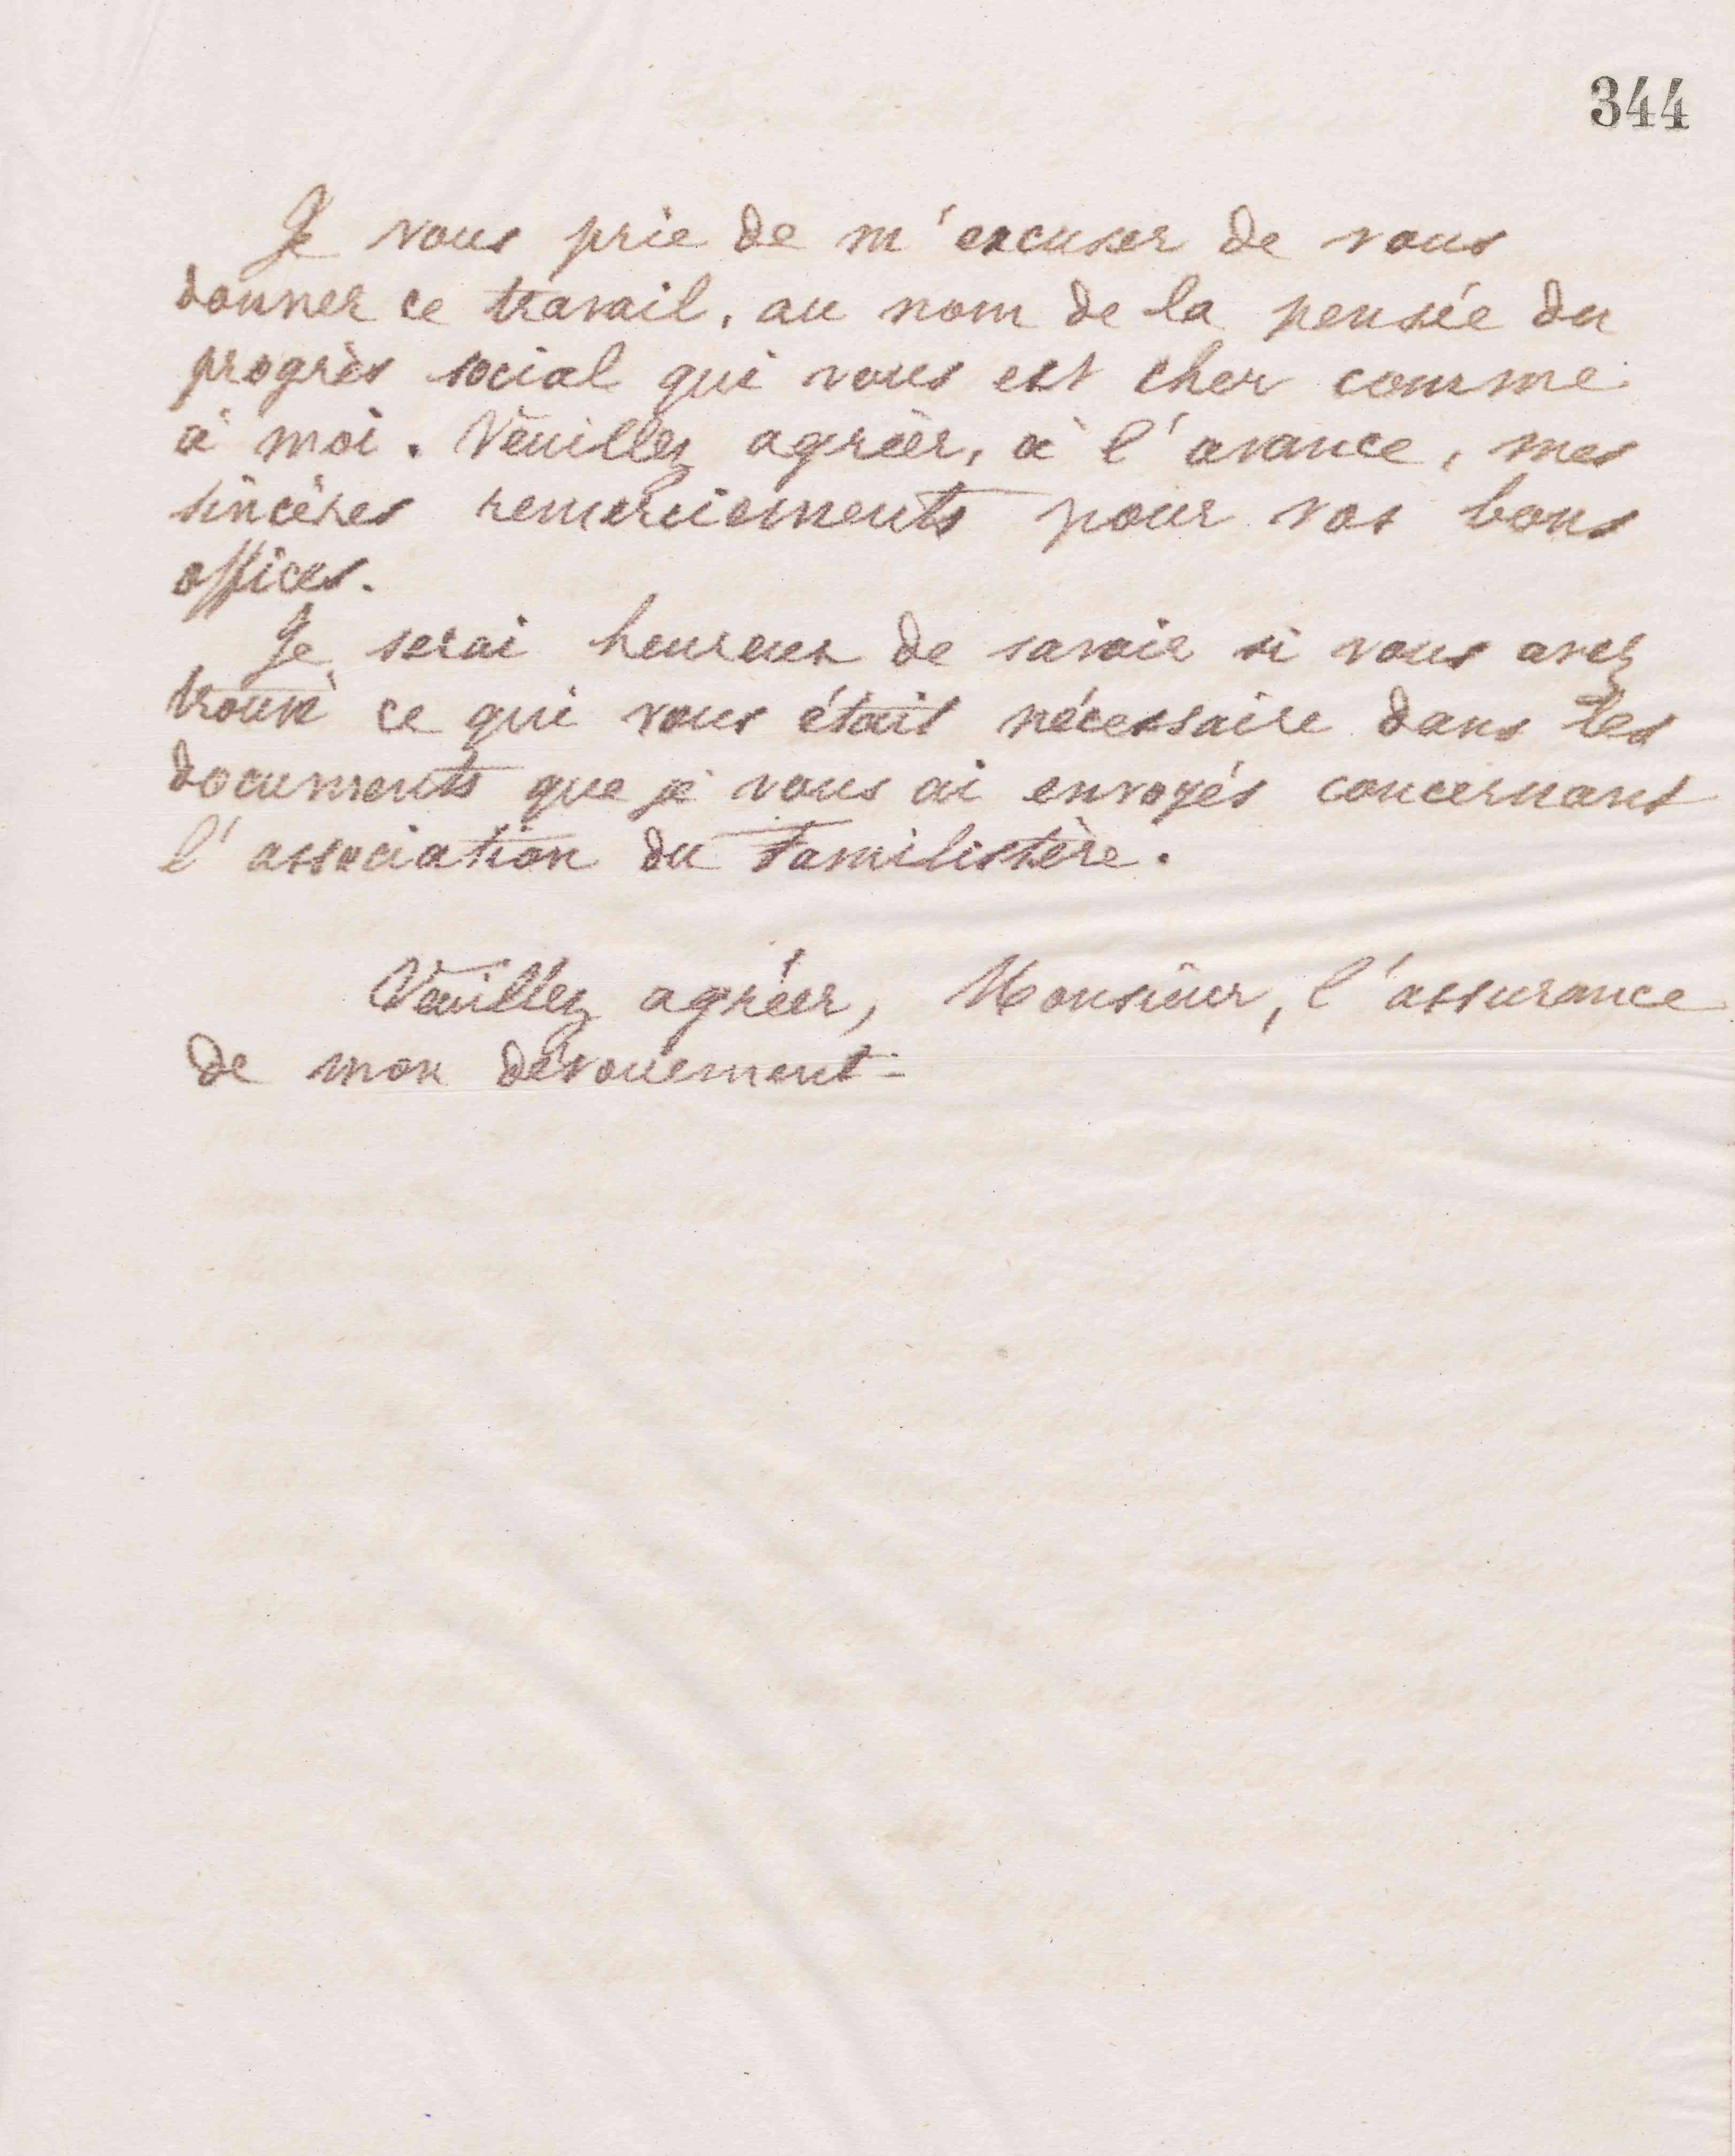 344
Je vous prie de m'excuser de vous
donner ce travail, au nom de la pensée du
progrès social qui vous est cher comme
à moi. Veuillez agréer, à l'avance, mes
sincères remerciements pour vos bons
offices.
Je serai heureux de savoir si vous avez
trouvé ce qui vous était nécessaire dans les
documents que je vous ai envoyés concernant
l'association du Familistère.
Veuillez agréer, Monsieur, l'assurance
de mon dévouement